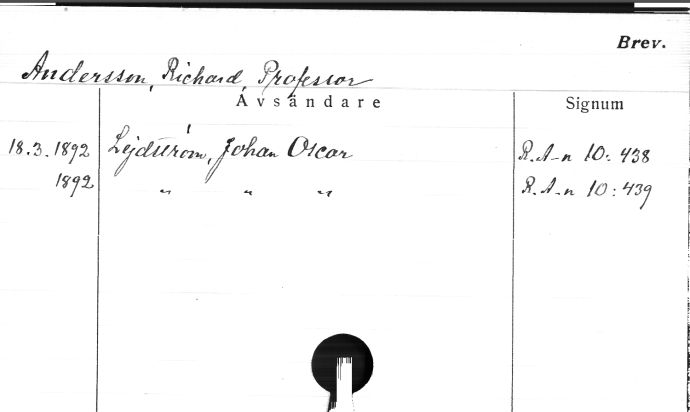 Brev.
Andersson, Richard, Professor
Avsändare Signum
18.3.1892 Lejdström, Johan Oscar R.A-n 10:438
1892 " " " R.A-n 10:439